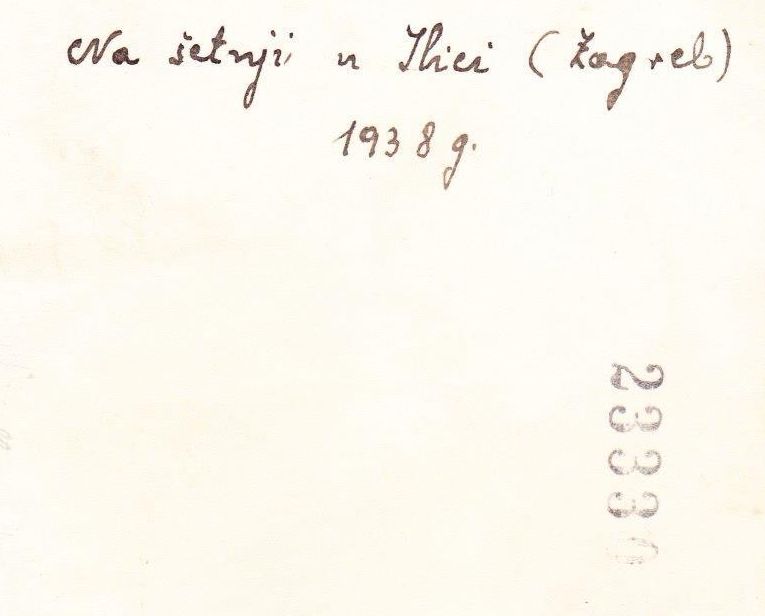 Na šetnji u Ilici (Zagreb)
1938 g.
23330